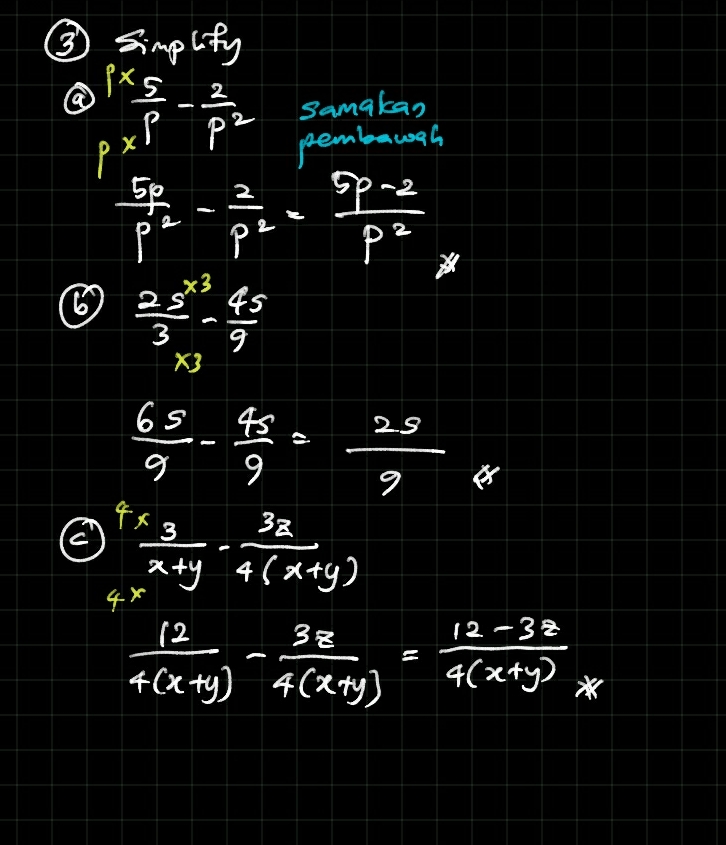 ③ Simplify
ⓐ p× 5/p - 2/p²
p×
samakan
pembawah
5p/p² - 2/p² = (5p-2)/p²
ⓑ 2s/3 - 4s/9
×3
×3
6s/9 - 4s/9 = 2s/9
ⓒ 4× 3/(x+y) - 3z/4(x+y)
4×
12/4(x+y) - 3z/4(x+y) = (12-3z)/4(x+y)